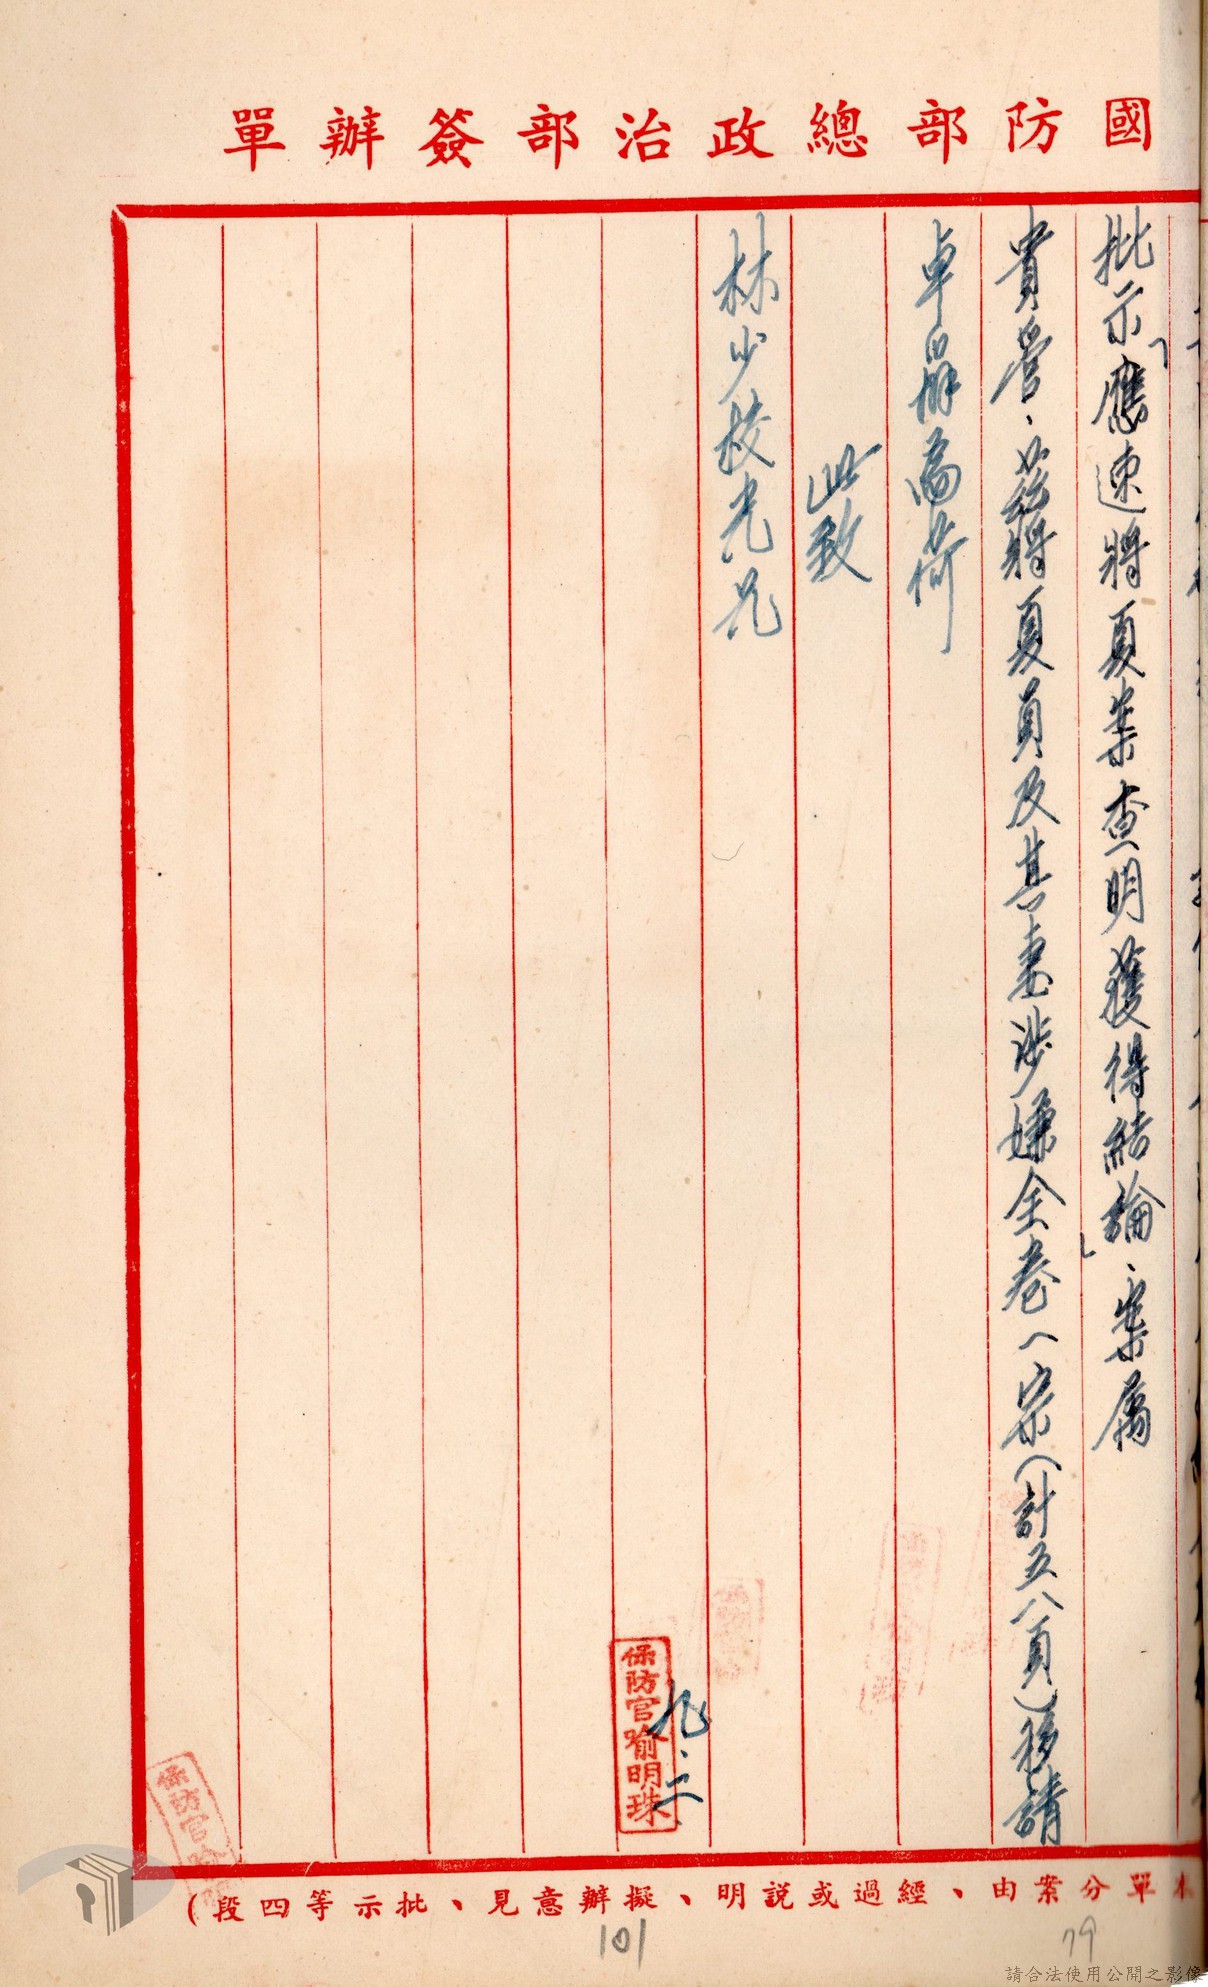 國防部總政治部簽辦單
批示「應速將夏案查明獲得結論」、案屬
貴營、茲將夏員及其妻涉嫌全卷一宗(計五八頁)移請
卓辦為荷
此致
林少校光兄
保防官喻明珠
九.二.
保防官喻
本單分案由、經過或說明、擬辦意見、批示等四段)
101
79
請合法使用公開之影像